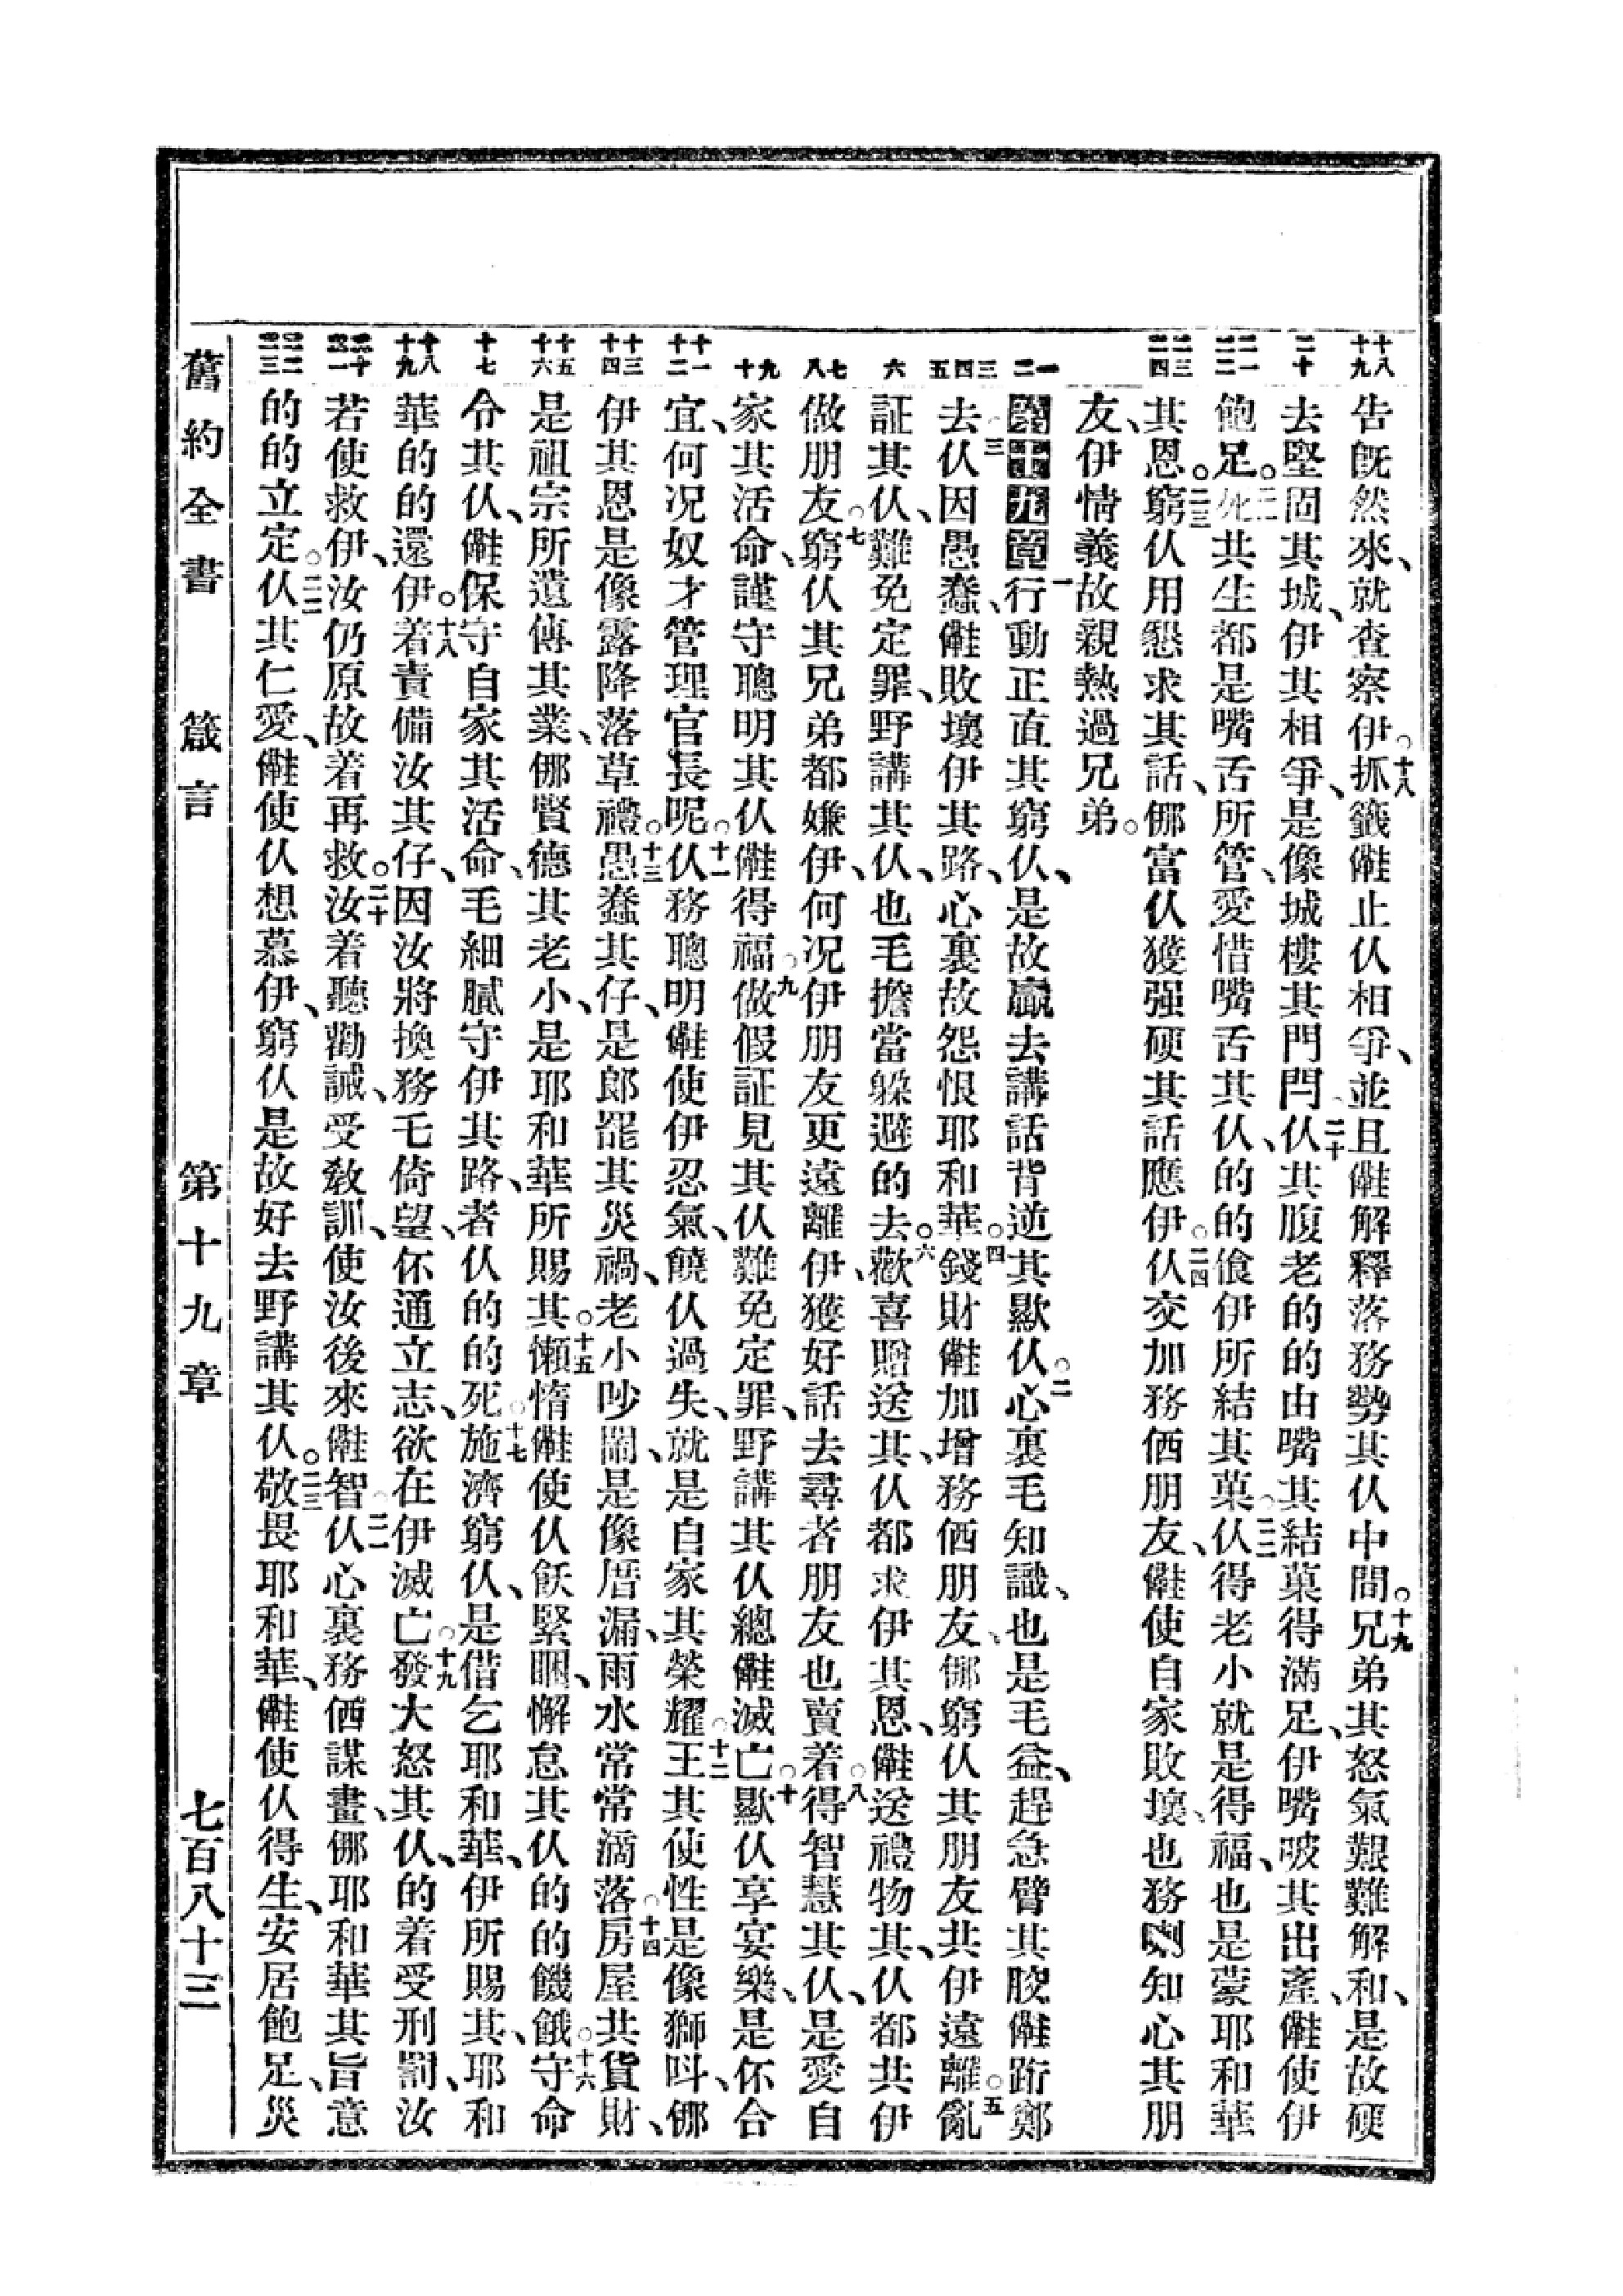 十八 十九 二十 二一 二二 二三 二四 一 二 三 四 五 六 七 八 九 十 十一 十二 十三 十四 十五 十六 十七 十八 十九 二十 二一 二二 二三
告旣然來、就查察伊。十八抓籤𣍐止伓相爭、並且𣍐解釋落務勢其伓中間。十九兄弟其怒氣艱難解和、是故硬
去堅固其城、伊其相爭、是像城樓其門閂。二十伓其腹老的的由嘴其結菓得滿足、伊嘴𠲿其出產、𣍐使伊
飽足。二一死共生都是嘴舌所管、愛惜嘴舌其伓、的的飧伊所結其菓。二二伓得老小就是得福、也是蒙耶和華
其恩。二三窮伓用懇求其話、𠆧富伓獲强硬其話應伊。二四伓交加務価朋友、𣍐使自家敗壞、也務喇知心其朋
友、伊情義故親熱過兄弟。
第十九章一行動正直其窮伓、是故贏去講話背逆其歞伓。二心裏毛知識、也是毛益、趕急臂其骹𣍐跲鄭
去。三伓因愚蠢、𣍐敗壞伊其路、心裏故怨恨耶和華。四錢財𣍐加增務価朋友、𠆧窮伓其朋友共伊遠離。五亂
証其伓、難免定罪、野講其伓、也毛擔當躱避的去。六歡喜贈送其、伓都求伊其恩、𣍐送禮物其、伓都共伊
做朋友。七窮伓其兄弟都嫌伊、何况伊朋友更遠離伊、獲好話去尋者朋友也賣着。八得智慧其伓、是愛自
家其活命、謹守聰明其伓𣍐得福。九做假証見其伓、難免定罪、野講其伓總𣍐滅亡。十歞伓享宴樂、是伓合
宜、何况奴才管理官長呢。十一伓務聰明、𣍐使伊忍氣、饒伓過失、就是自家其榮耀。十二王其使性是像獅呌、𠆧
伊其恩是像露降落草禮。十三愚蠢其仔、是郎罷其災禍、老小吵鬧、是像厝漏、雨水常常滴落。十四房屋共貨財、
是祖宗所遺傳其業、𠆧賢德其老小、是耶和華所賜其。十五懶惰𣍐使伓飫緊睏、懈怠其伓的的饑餓。十六守命
令其伓、𣍐保守自家其活命、毛細膩守伊其路、者伓的的死。十七施濟窮伓、是借乞耶和華、伊所賜其、耶和
華的的還伊。十八着責備汝其仔、因汝將換務毛倚望、伓通立志、欲在伊滅亡。十九發大怒其伓、的着受刑罰、汝
若使救伊、汝仍原故着再救。二十汝着聽勸誡、受敎訓、使汝後來𣍐智。二一伓心裏務価謀畫、𠆧耶和華其旨意
的的立定。二二伓其仁愛、𣍐使伓想慕伊、窮伓是故好去野講其伓。二三敬畏耶和華、𣍐使伓得生、安居飽足、災
舊約全書　箴言　第十九章　七百八十三